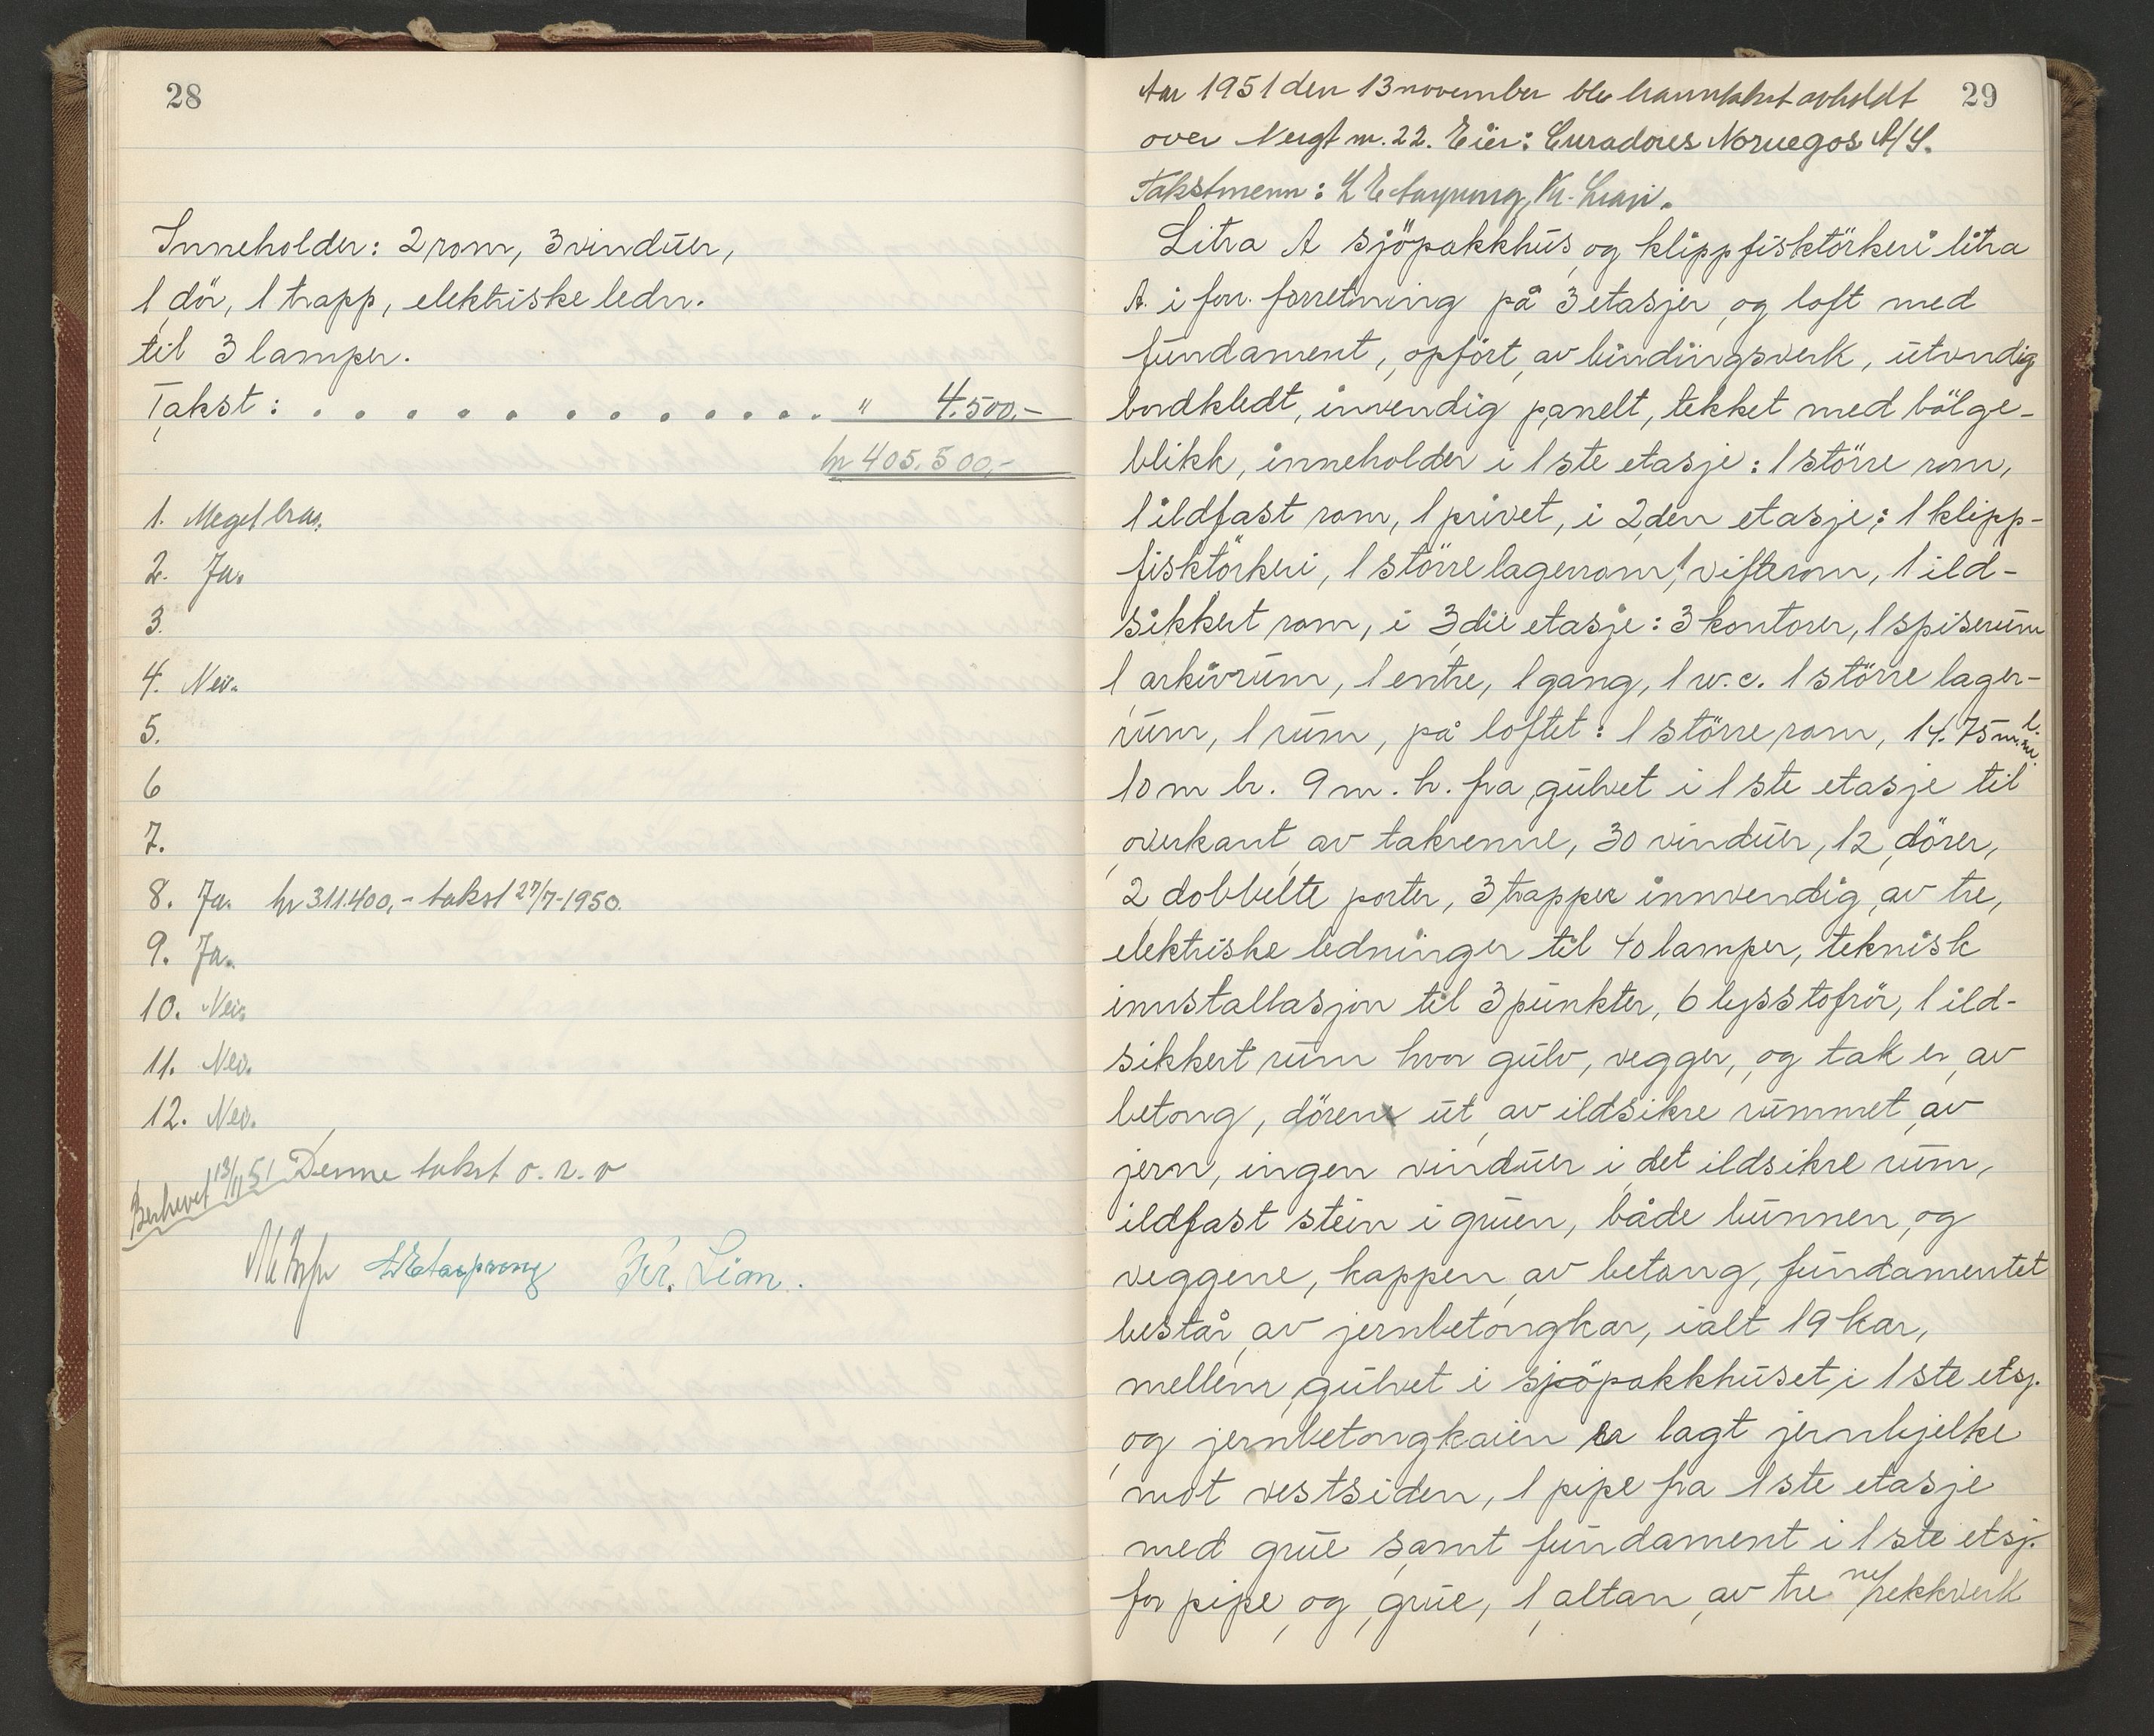 28
Inneholder: 2 rom, 3 vinduer,
1 dör, 1 trapp, elektriske ledn.
til 3 lamper.
Takst: . . . . . . . . . . . . . . " 4.500,-
kr 405.500,-
1. Meget bra.
2. Ja.
3.
4. Nei.
5.
6
7.
8. Ja. kr 311.400,- takst 27/7-1950.
9. Ja.
10. Nei.
11. Nei.
12. Nei.
13/11 51 Denne takst o. s. v
Kr. Lian.
29
Aar 1951 den 13 november ble branntakst avholdt
over Nergt nr. 22. Eier: Curadores Noruegos A/S.
Takstmenn: Kr. Lian.
Litra A sjöpakkhus og klippfisktörkeri litra
A. i forr. forretning på 3 etasjer og loft med
fundament, opfört av bindingsverk, utvendig
bordkledt, invendig panelt, tekket med bölge-
blikk, inneholder i 1ste etasje: 1 större rom,
1 ildfast rom, 1 privet, i 2den etasje: 1 klipp-
fisktörkeri, 1 större lagerrom, 1 vifterom, 1 ild-
sikkert rom, i 3die etasje: 3 kontorer, 1 spiserum
1 arkivrum, 1 entre, 1 gang, 1 w.c. 1 större lager-
rum, 1 rum, på loftet: 1 större rom, 14.75 m. l.
10 m br. 9 m. h. fra gulvet i 1ste etasje til
overkant av takrenne, 30 vinduer, 12 dörer,
2 dobbelte porter, 3 trapper innvendig av tre,
elektriske ledninger til 40 lamper, teknisk
innstallasjon til 3 punkter, 6 lysstofrör, 1 ild-
sikkert rum hvor gulv, vegger, og tak er av
betong, dören ut av ildsikre rummet av
jern, ingen vinduer i det ildsikre rum,
ildfast stein i gruen, både bunnen og
veggene, kappen av betong, fundamentet
består av jernbetongkar, ialt 19 kar,
mellem gulvet i sjöpakkhuset i 1ste etsj.
og jernbetongkaien er lagt jernbjelke
mot vestsiden, 1 pipe fra 1ste etasje
med grue samt fundament i 1ste etsj.
for pipe og grue, 1 altan av tre m/rekkverk